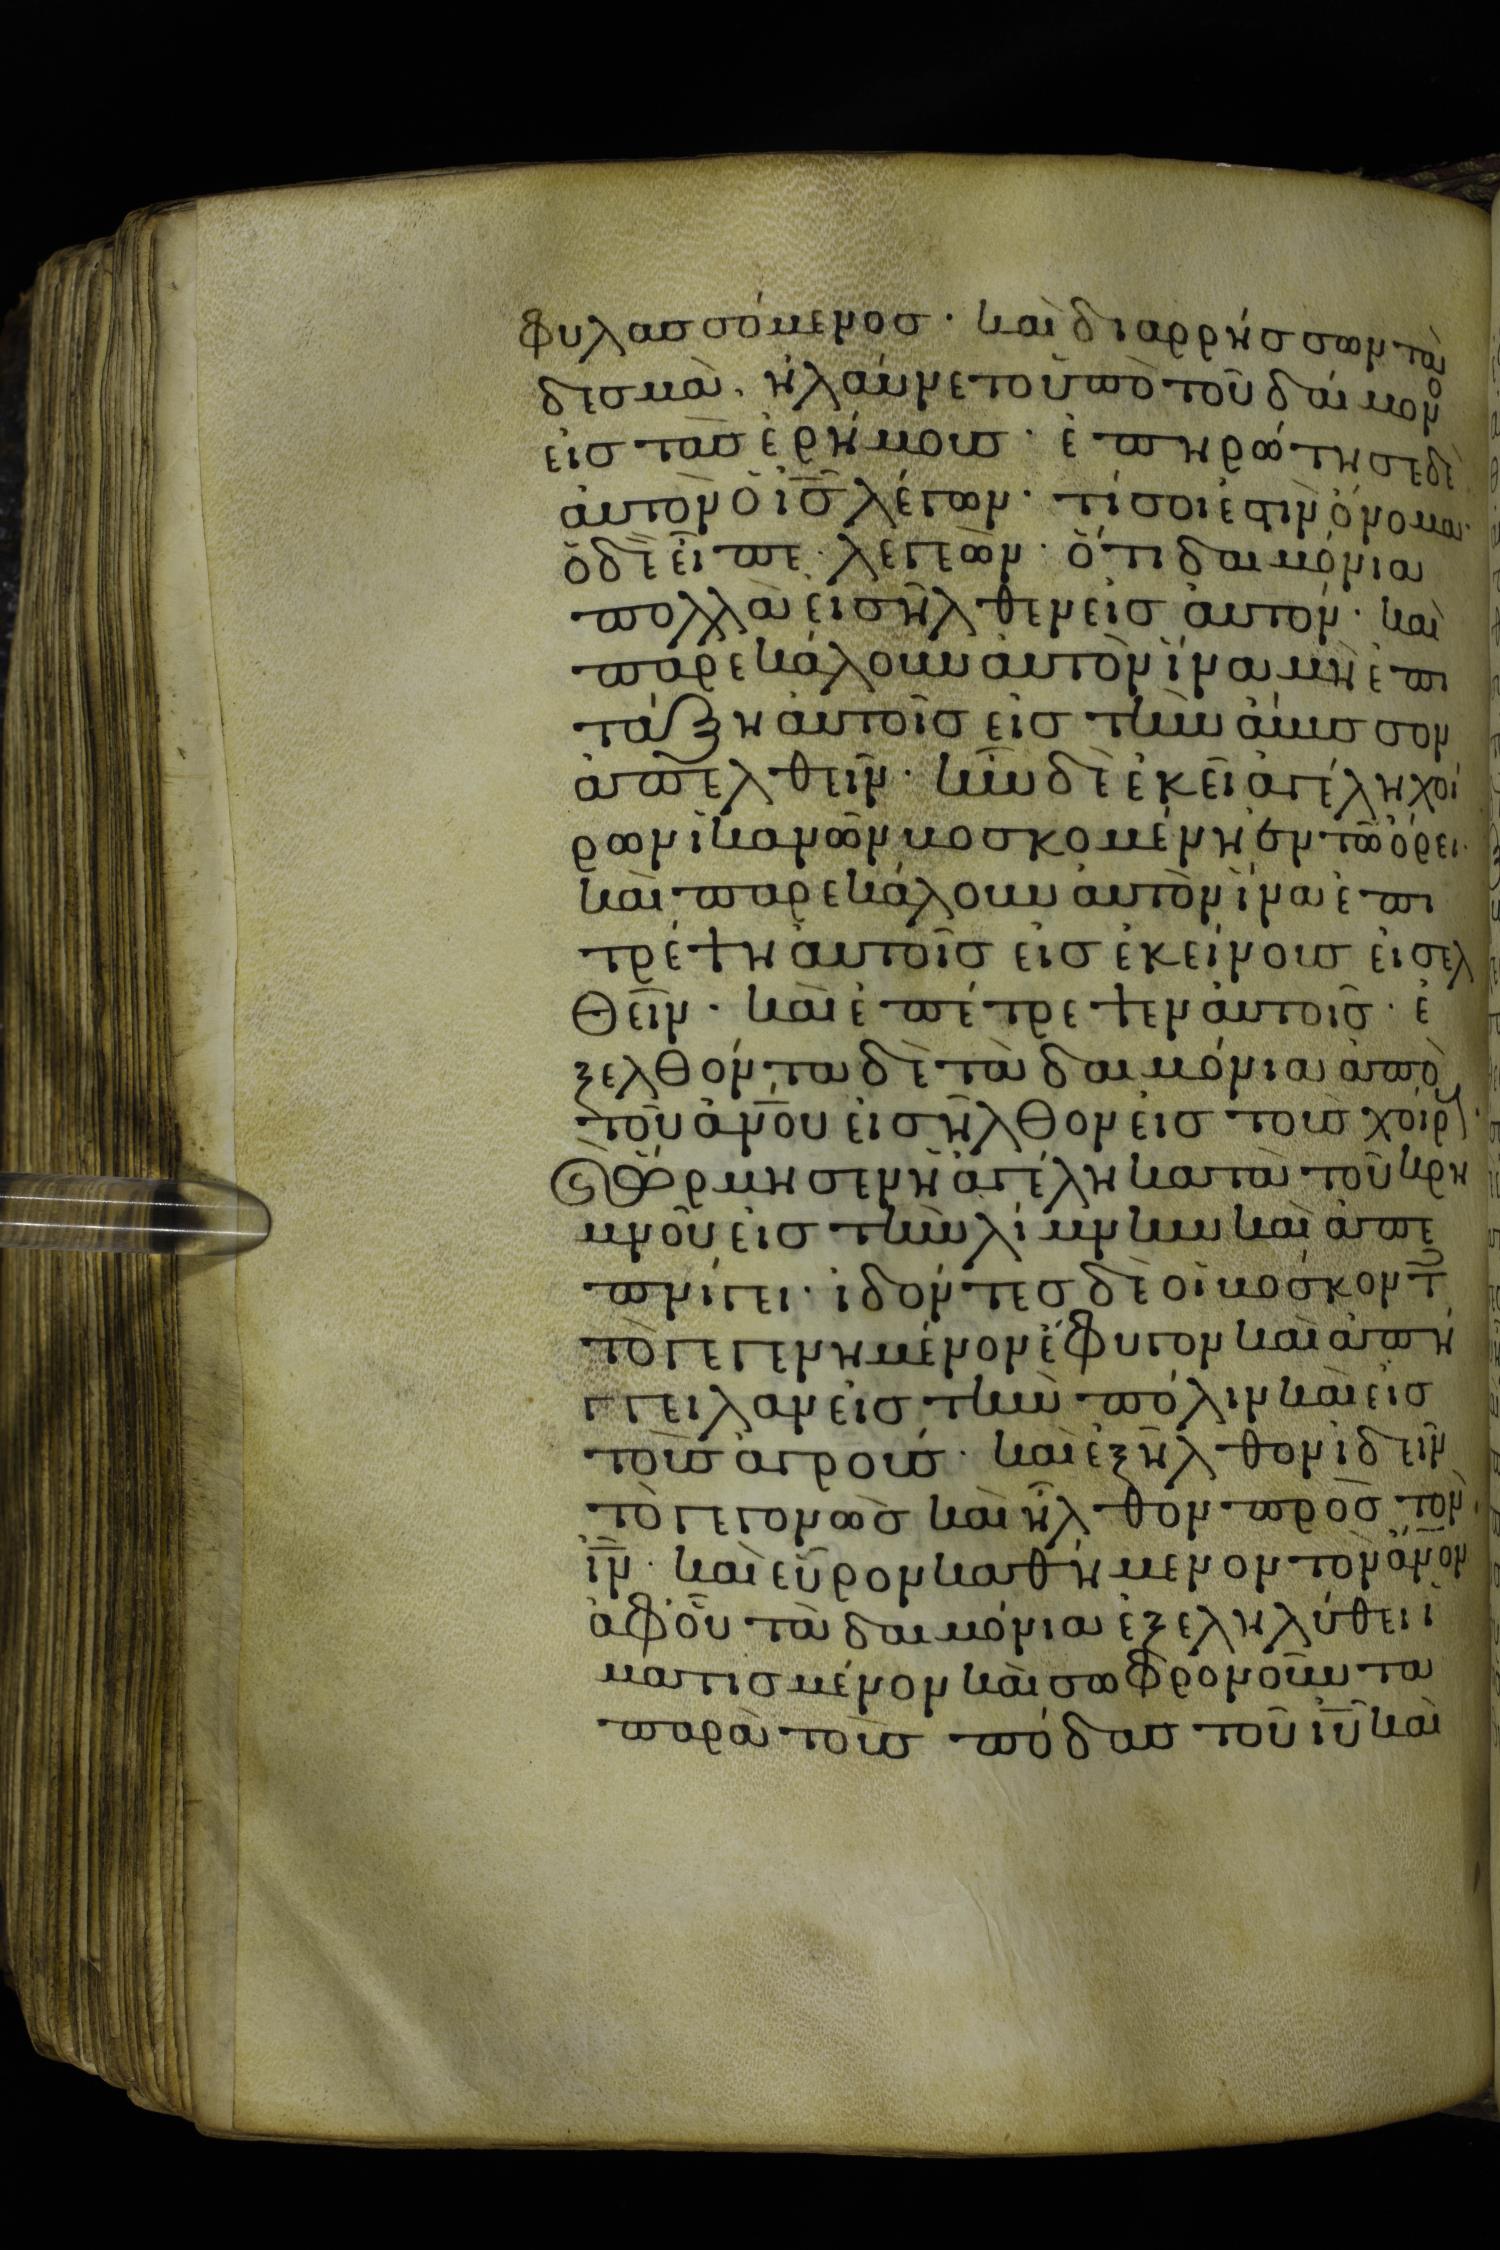 φυλασσόμενος· καὶ διαρρήσσων τὰ
δεσμὰ· ἠλαύνετο ὑπὸ τοῦ δαίμονο
εἰς τὰς ἐρήμους· ἐπηρώτησε δὲ
αὐτὸν ὁ ις̅ λέγων· τί σοι ἐστὶν ὄνομα·
ὁ δὲ εἶπε· λεγεὼν· ὅτι δαιμόνια
πολλὰ εἰσῆλθεν εἰς αὐτόν· καὶ
παρεκάλουν αὐτὸν ἵνα μὴ ἐπι
τάξη αὐτοῖς εἰς τὴν ἄβυσσον
ἀπελθεῖν· ἦν δὲ ἐκεῖ ἀγέλη χοί
ρων ἱκανῶν βοσκομένη ἐν τῶ ὄρει·
καὶ παρεκάλουν αὐτὸν ἵνα ἐπι
τρέψη αὐτοῖς εἰς ἐκείνους εἰσελ
θεῖν· καὶ ἐπέτρεψεν αὐτοῖς· ἐ
ξελθόντα δὲ τὰ δαιμόνια ἀπὸ
τοῦ ἀνου̅ εἰσῆλθον εἰς τοὺς χοίρους·
ὥρμησεν ἡ ἀγέλη κατὰ τοῦ κρη
μνοῦ εἰς τὴν λίμνην καὶ ἀπε
πνίγει· ἰδόντες δὲ οἱ βόσκοντε
τὸ γεγενημένον ἔφυγον καὶ ἀπή
γγειλαν εἰς τὴν πόλιν καὶ εἰς
τοὺς ἀγρούς· καὶ ἐξῆλθον ἰδεῖν
τὸ γεγονὼς καὶ ἦλθον πρὸς τὸν
ιν̅· καὶ εὗρον καθήμενον τὸν ανον̅
ἀφ' οὗ τὰ δαιμόνια ἐξεληλύθει ἱ
ματισμένον καὶ σωφρονοῦντα
παρὰ τοὺς πόδας τοῦ ιυ̅ καὶ